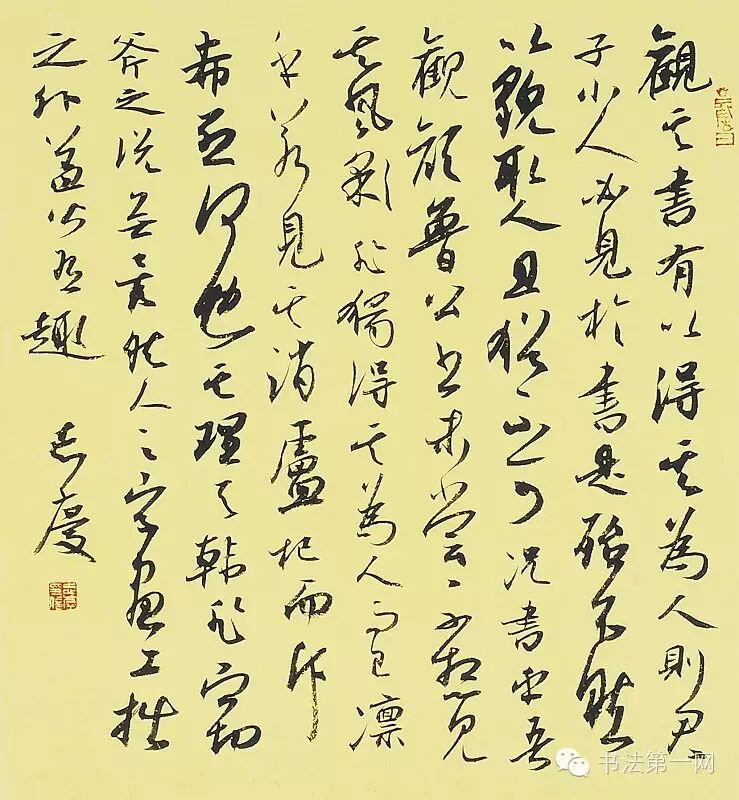 觀其書有以得其為人則君
子小人必見於書是殆不然
以貌取人且猶不可况書乎吾
觀顏魯公書未嘗不想見
其風彩非獨得其為人而已凛
乎若見其誚盧杞而叱
希烈何也其理與韓非竊
斧之説無異然人之字畫工拙
之外蓋皆有趣
志慶
书法第一网